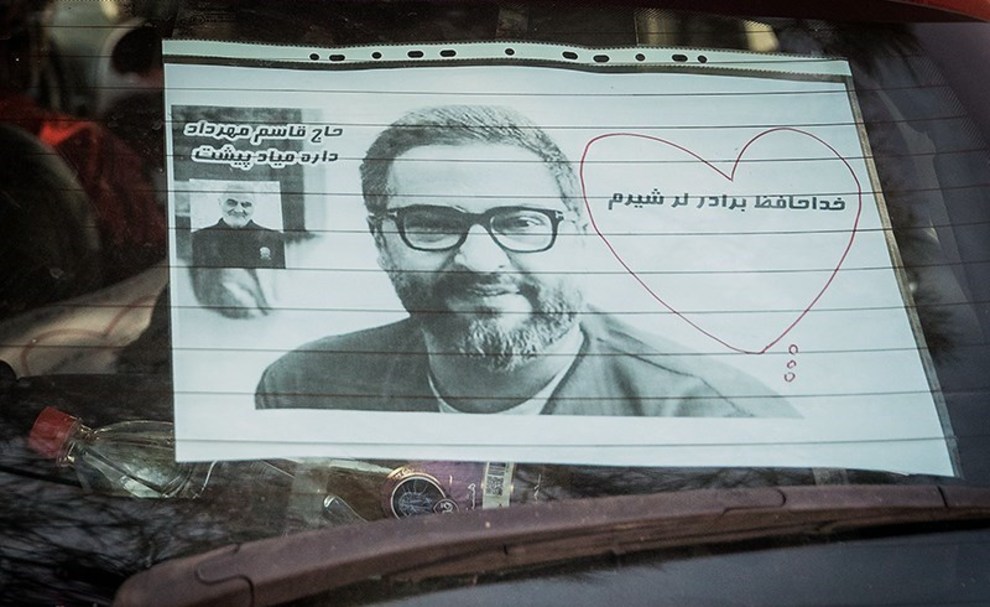 خداحافظ برادر لر شیرم
حاج قاسم مهرداد
داره میاد پیشت